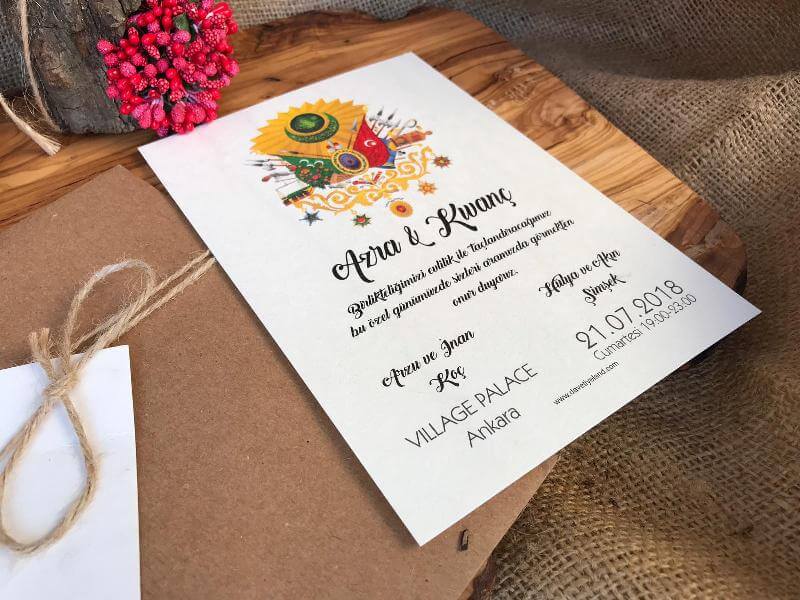 Azra & Kıvanç
Birlikteliğimizi evlilik ile Taçlandıracağımız
bu özel günümüzde sizleri aramızda görmekten
onur duyarız.
Arzu ve İnan
Koç
Hülya ve Akın
Şimşek
VILLAGE PALACE
Ankara
21.07.2018
Cumartesi 19.00-23.00
www.davetiyeland.com